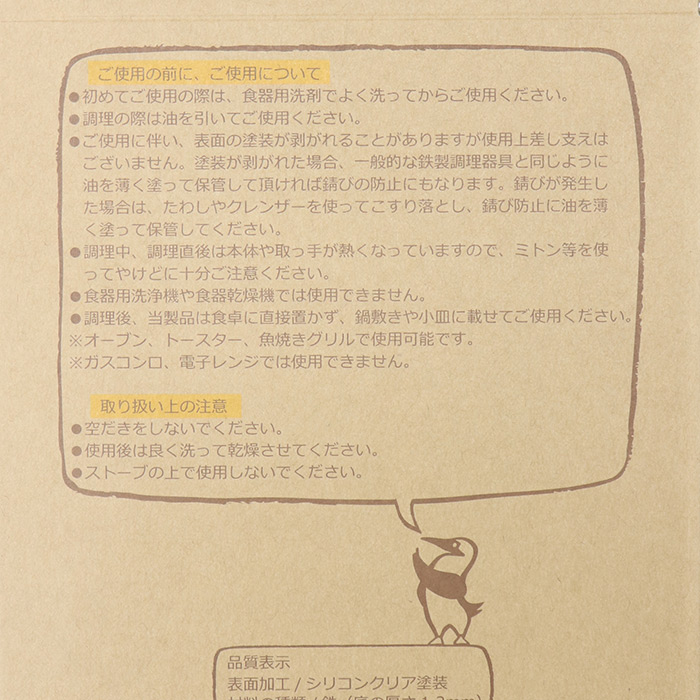 ご使用の前に、ご使用について
●初めてご使用の際は、食器用洗剤でよく洗ってからご使用ください。
●調理の際は油を引いてご使用ください。
●ご使用に伴い、表面の塗装が剥がれることがありますが使用上差し支えは
ございません。塗装が剥がれた場合、一般的な鉄製調理器具と同じように
油を薄く塗って保管して頂ければ錆びの防止にもなります。錆びが発生し
た場合は、たわしやクレンザーを使ってこすり落とし、錆び防止に油を薄
く塗って保管してください。
●調理中、調理直後は本体や取っ手が熱くなっていますので、ミトン等を使
ってやけどに十分ご注意ください。
●食器用洗浄機や食器乾燥機では使用できません。
●調理後、当製品は食卓に直接置かず、鍋敷きや小皿に載せてご使用ください。
※オーブン、トースター、魚焼きグリルで使用可能です。
※ガスコンロ、電子レンジでは使用できません。
取り扱い上の注意
●空だきをしないでください。
●使用後は良く洗って乾燥させてください。
●ストーブの上で使用しないでください。
品質表示
表面加工 / シリコンクリア塗装
材料の種類 / 鉄（底の厚さ1.2mm）